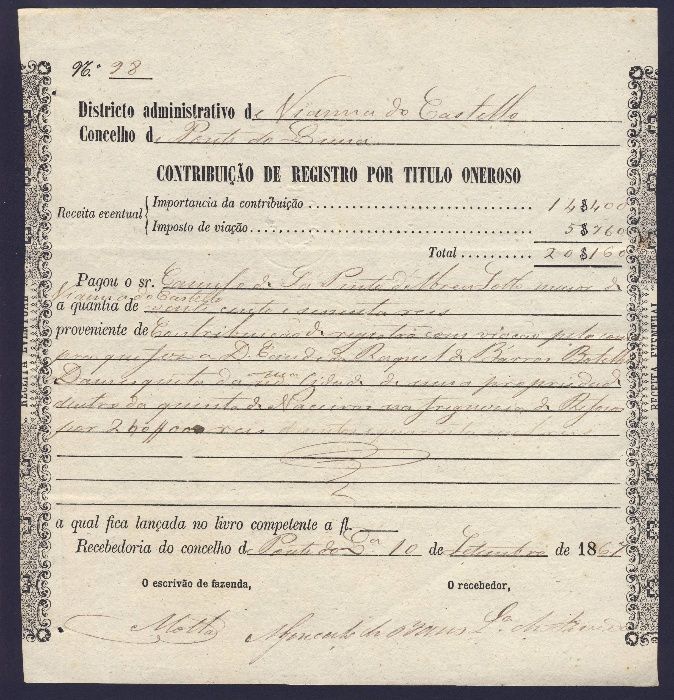 N.º 98
Districto administrativo de Vianna do Castello
Concelho de Ponte do Lima
CONTRIBUIÇÃO DE REGISTRO POR TITULO ONEROSO
Receita eventual
Importancia da contribuição 14$400
Imposto de viação 5$760
Total 20$160
Pagou o sr. de Sá Pinto de
Vianna do Castello
a quantia de vinte cento e sessenta reis
proveniente de Contribuição de registro com viação pela com
pra que fez a D. de Raquel de Barros Botelho
da Cidade de uma propriedade
dentro da quinta de na freguesia de Refoios
por reis
a qual fica lançada no livro competente a fl.
Recebedoria do concelho de Ponte do L.ª 10 de Setembro de 1867
O escrivão de fazenda,
O recebedor,
Motta
RECEITA EVENTUAL
RECEITA EVENTUAL